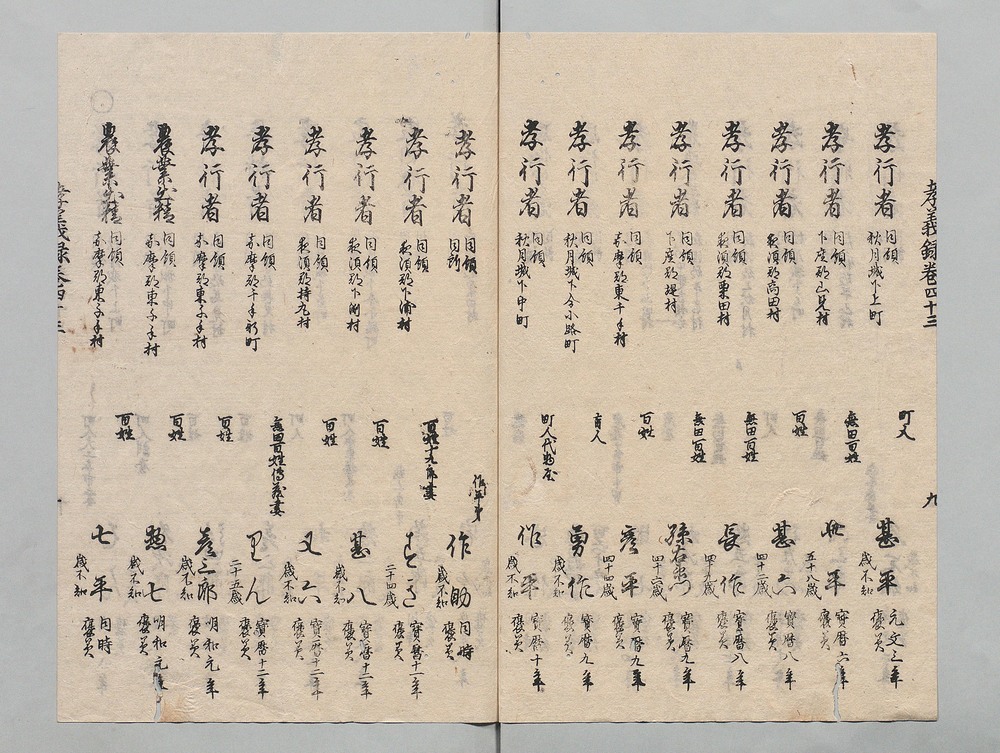 孝義録巻四十三
九
孝行者 同領 秋月城下上町 町人 甚平 歳不知 元文三年 褒美
孝行者 同領 下座郡山見村 無田百姓 平 五十八歳 宝暦六年 褒美
孝行者 同領 夜須郡高田村 百姓 甚六 四十二歳 宝暦八年 褒美
孝行者 同領 夜須郡栗田村 無田百姓 長作 四十九歳 宝暦八年 褒美
孝行者 同領 下座郡堤村 無田百姓 孫右衛門 四十六歳 宝暦九年 褒美
孝行者 同領 嘉摩郡東千手村 百姓 彦平 四十四歳 宝暦九年 褒美
孝行者 同領 秋月城下今小路町 商人 勇作 歳不知 宝暦九年 褒美
孝行者 同領 秋月城下中町 町人代物屋 作平 歳不知 宝暦十年 褒美
孝行者 同領 同所 作平弟 作助 歳不知 同時 褒美
孝行者 同領 夜須郡下渕村 百姓十九郎妻 すき 二十四歳 宝暦十一年 褒美
孝行者 同領 夜須郡下渕村 百姓 甚八 歳不知 宝暦十二年 褒美
孝行者 同領 夜須郡持丸村 百姓 又六 歳不知 宝暦十二年 褒美
孝行者 同領 嘉摩郡千手町 無田百姓傳蔵妻 りん 二十五歳 宝暦十二年 褒美
孝行者 同領 嘉摩郡東千手村 百姓 彦三郎 歳不知 明和元年 褒美
農業出精 同領 嘉摩郡東千手村 百姓 惣七 歳不知 明和元年 褒美
農業出精 同領 嘉摩郡東千手村 百姓 七平 歳不知 同時 褒美
孝義録巻四十三